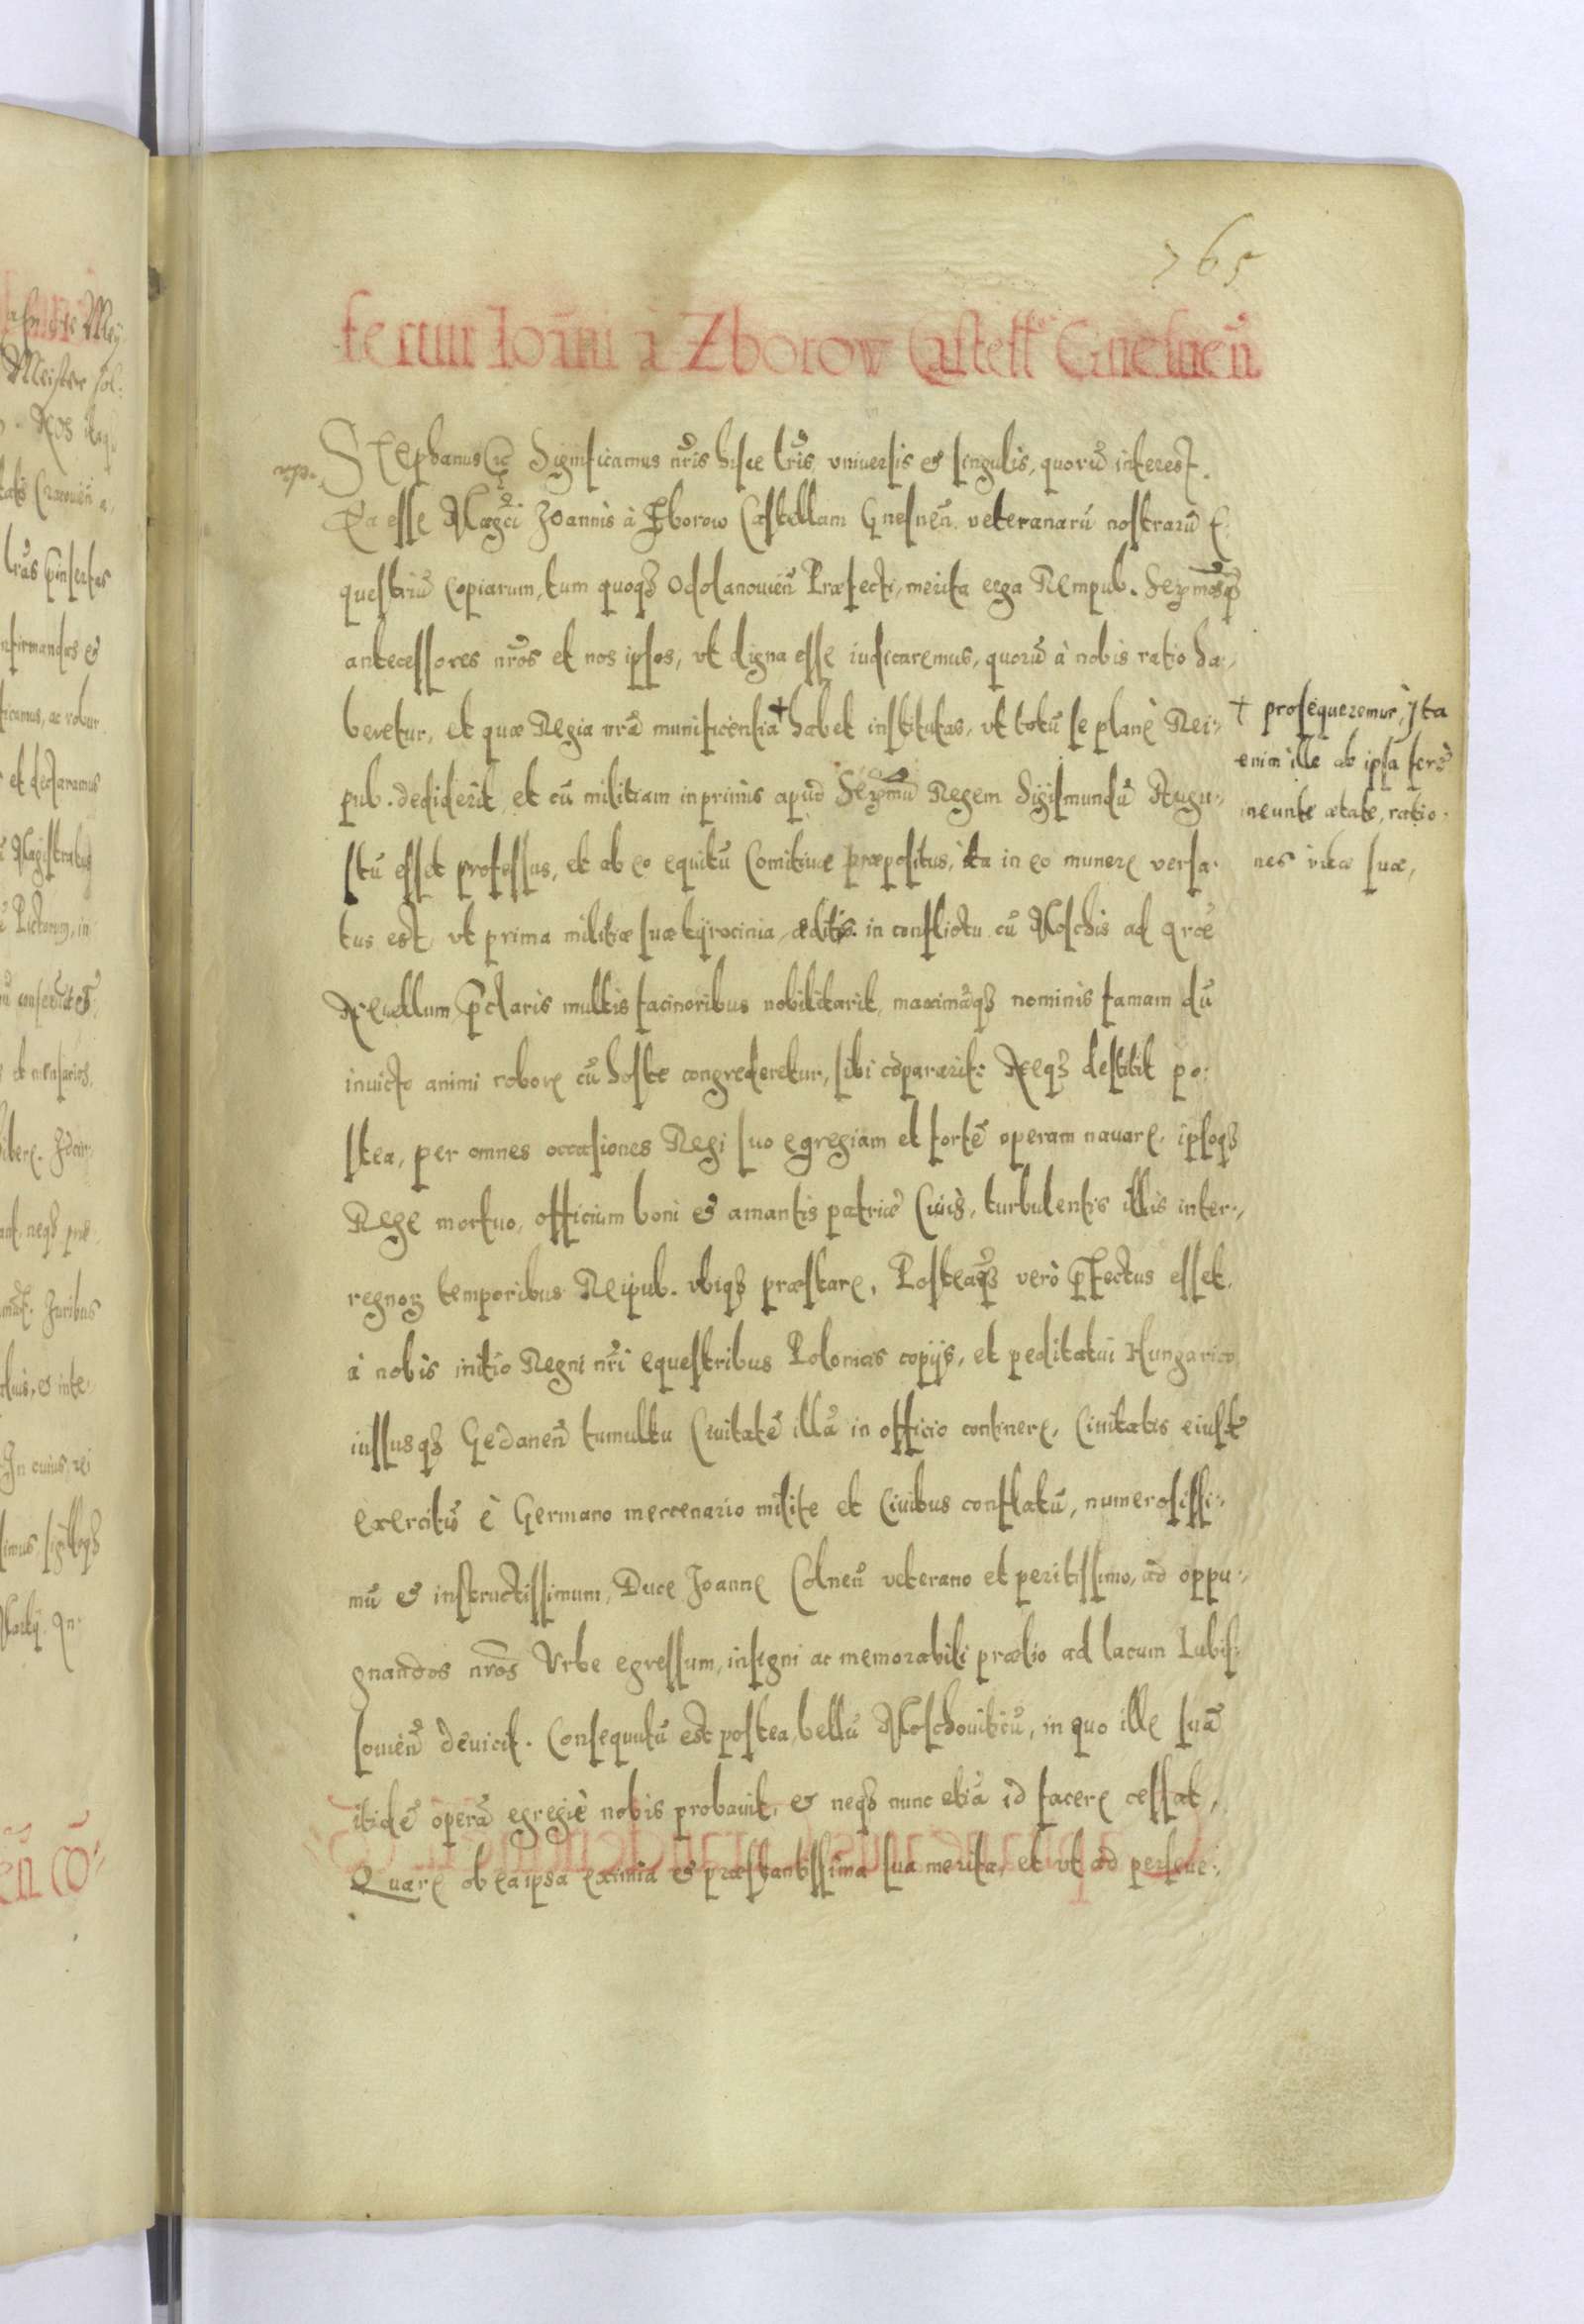 765
fecturr Joāni à Zborow Castell Gnesneñ
Stephanus etc̃ Significamus nr̃is hisce lr̃is vniuersis et singulis, quorũ interest.
Ea esse Magci Joannis à Zborow Castellani Gnesneñ. veteranarũ nostrarũ E
questriũ copiarum, tum quoqꝫ Odolanouieñ Præfecti, merita erga Rempub. Serẽmosqꝫ
antecessores nr̃os et nos ipsos, vt digna esse iudicaremus, quorũ à nobis ratio ha-
beretur, et quæ Regia nr̃a munificentia † habet institutas, vt totũ se planè Rei-
† prosequeremur, Jta
enim ille ab ipsa ferè
ineunte ætate, ratio-
nes vitæ suæ,
pub. dediderit, et cũ militiam inprimis apud Serẽmũ Regem Sigismundũ Augu-
stũ esset professus, et ab eo equitũ Comitiuæ præpositus, ita in eo munere versa-
tus est, vt prima militiæ suæ tyrocinia, æditis in conflictu cũ Moschis ad arcẽ
Neuellum p̃claris multis facinoribus nobilitarit, maximãqꝫ nominis famam dũ
inuicto animi robore cũ hoste congrederetur, sibi cõpararit: Neqꝫ destitit po-
stea, per omnes occasiones Regi suo egregiam et fortẽ operam nauare, ipsoqꝫ
Rege mortuo, officium boni et amantis patriæ Ciuis, turbulentis illis inter-
regnorꝫ temporibus Reipub. vbiqꝫ præstare, Posteaqꝫ verò p̃fectus esset,
à nobis initio Regni nr̃i equestribus Polonicis copijs, et peditatui Hungarico
iussusqꝫ Gedaneñ tumultu Ciuitatẽ illã in officio continere, Ciuitatis eiusd̃
exercitũ è Germano mercenario milite et Ciuibus conflatũ, numerosissi-
mũ et instructissimum, Duce Joanne Colneñ veterano et peritissimo, ad oppu-
gnandos nr̃os Vrbe egressum, insigni ac memorabili prælio ad lacum Lubis-
souieñ deuicit. Consequutũ est postea, bellũ Moschouiticũ, in quo ille suã
itidẽ operã egregiè nobis probauit, et neqꝫ nunc etiã id facere cessat,
Quare ob ea ipsa eximia et præstantissima sua merita, et vt ad perseue-